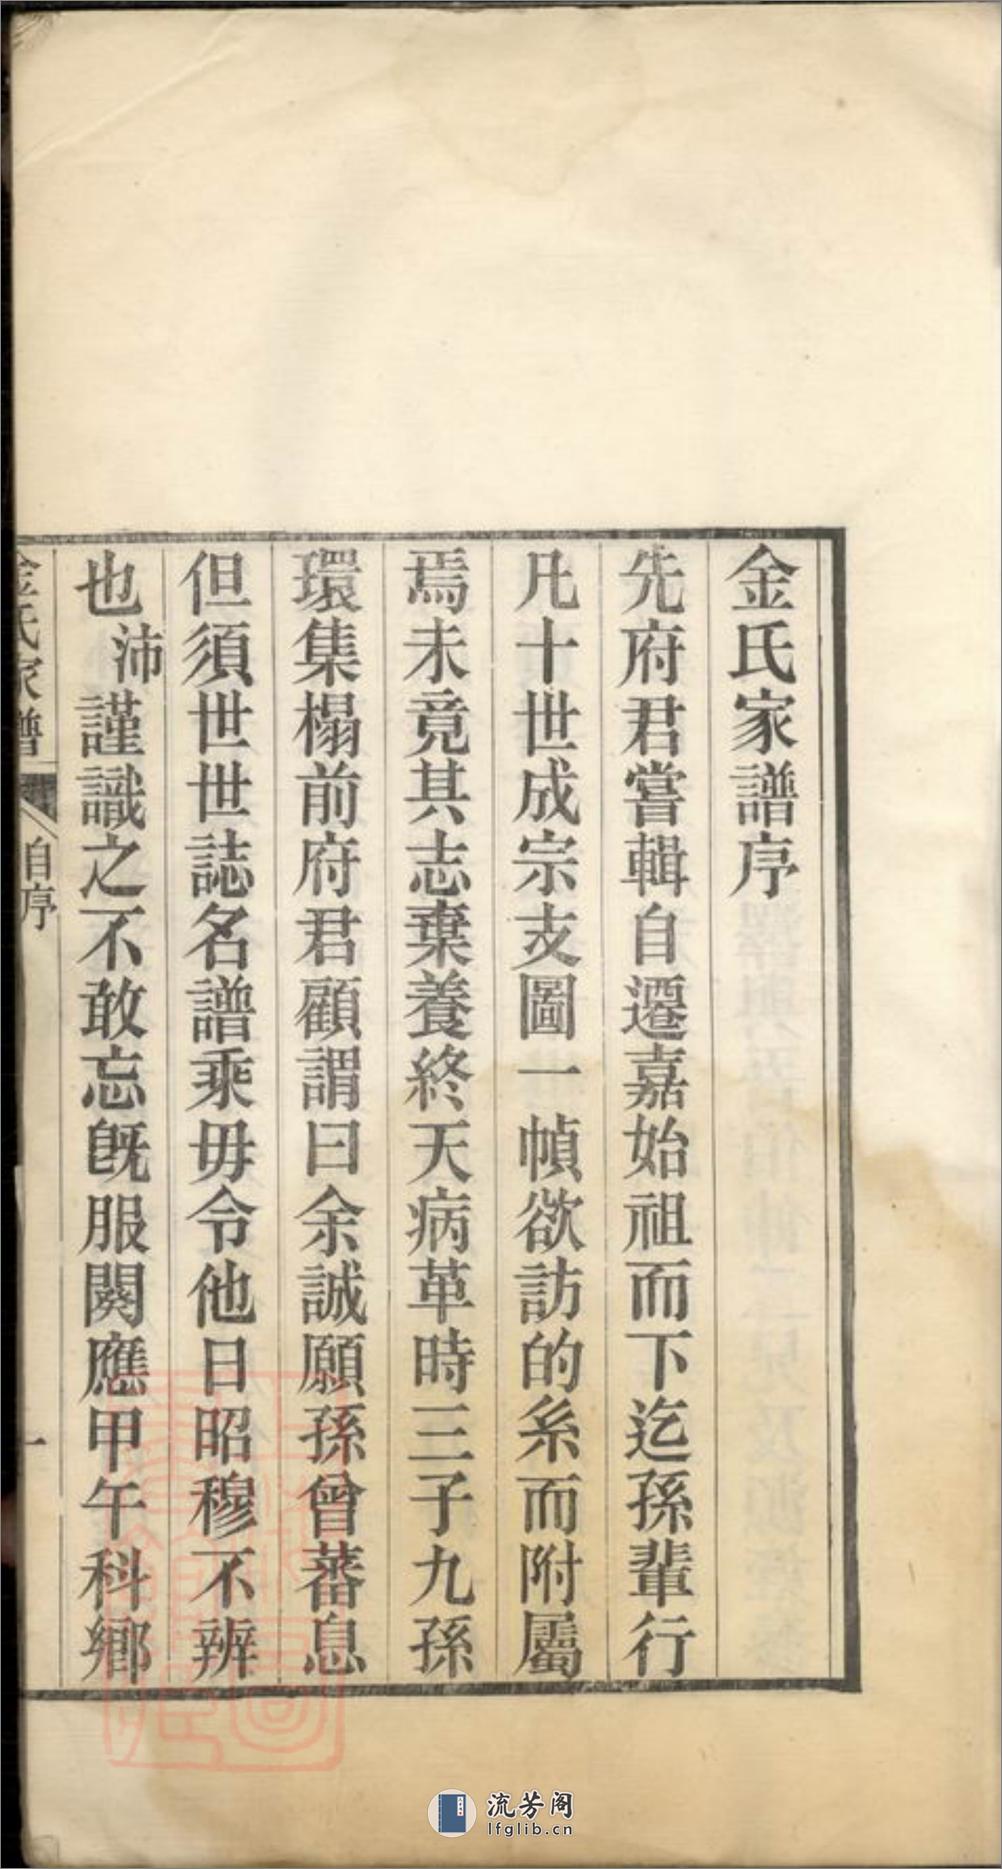 金氏家譜序
先府君嘗輯自遷嘉始祖而下迄孫輩行
凡十世成宗支圖一幀欲訪的系而附屬
焉未竟其志棄養終天病革時三子九孫
環集榻前府君顧謂曰余誠願孫曾蕃息
但須世世誌名譜乘毋令他日昭穆不辨
也沛謹識之不敢忘旣服闋應甲午科鄉
金氏家譜
自序
一
流芳阁
lfglib.cn